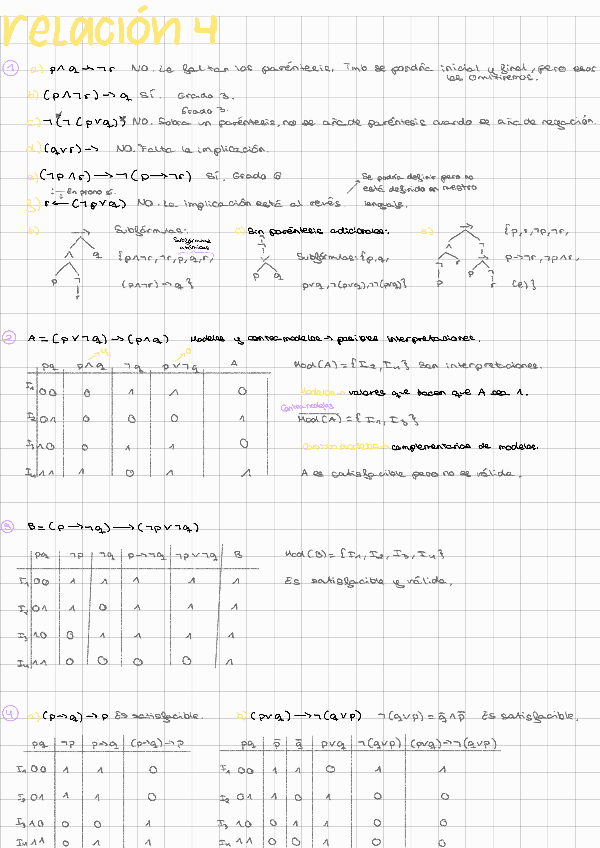 relación 4
1 a) p∧q → ¬r NO. Le faltan los paréntesis. Tmb se pondría inicial y final, pero esos los omitiremos.
b) (p∧¬r) → q Sí. Grado 3.
Grado 3.
c) ¬(¬(p∨q)) NO. Sobra un paréntesis, no se añade paréntesis cuando se añade negación.
d) (q∨r) → NO. Falta la implicación.
e) (¬p∧r) → ¬(p → ¬r) Sí. Grado 6
Se podría definir pero no está definido en nuestro lenguaje.
f) r ← (¬p∨q) NO. La implicación está al revés
b) Subfórmulas:
Subfórmulas atómicas
{p∧¬r, ¬r, p, q, r,
(p∧¬r) → q}
→ ∧ q p ¬ r
c) Sin paréntesis adicionales:
Subfórmulas: {p, q,
p∨q, ¬(p∨q), ¬¬(p∨q)}
¬ ¬ ∨ p q
e) {p, r, ¬p, ¬r,
p→¬r, ¬p∧r,
(e)}
2 A = (p∨¬q) → (p∧q) Modelos y contramodelos → posibles interpretaciones.
pq p∧q ¬q p∨¬q A
I1 00 0 1 1 0
I2 01 0 0 0 1
I3 10 0 1 1 0
I4 11 1 0 1 1
Mod(A) = {I2, I4} Son interpretaciones.
Modelos → valores que hacen que A sea 1.
Contramodelos
Mod(A) = {I1, I3}
Contramodelos → complementarios de modelos.
A es satisfacible pero no es válida.
3 B = (p → ¬q) → (¬p∨¬q)
pq ¬p ¬q p→¬q ¬p∨¬q B
I1 00 1 1 1 1 1
I2 01 1 0 1 1 1
I3 10 0 1 1 1 1
I4 11 0 0 0 0 1
Mod(B) = {I1, I2, I3, I4}
Es satisfacible y válida.
4 a) (p→q) → p Es satisfacible.
pq ¬p p→q (p→q)→p
I1 00 1 1 0
I2 01 1 1 0
I3 10 0 0 1
I4 11 0 1 1
b) (p∨q) → ¬(q∨p) ¬(q∨p) = q̄∧p̄ Es satisfacible.
pq p̄ q̄ p∨q ¬(q∨p) (p∨q)→¬(q∨p)
I1 00 1 1 0 1 1
I2 01 1 0 1 0 0
I3 10 0 1 1 0 0
I4 11 0 0 1 0 0